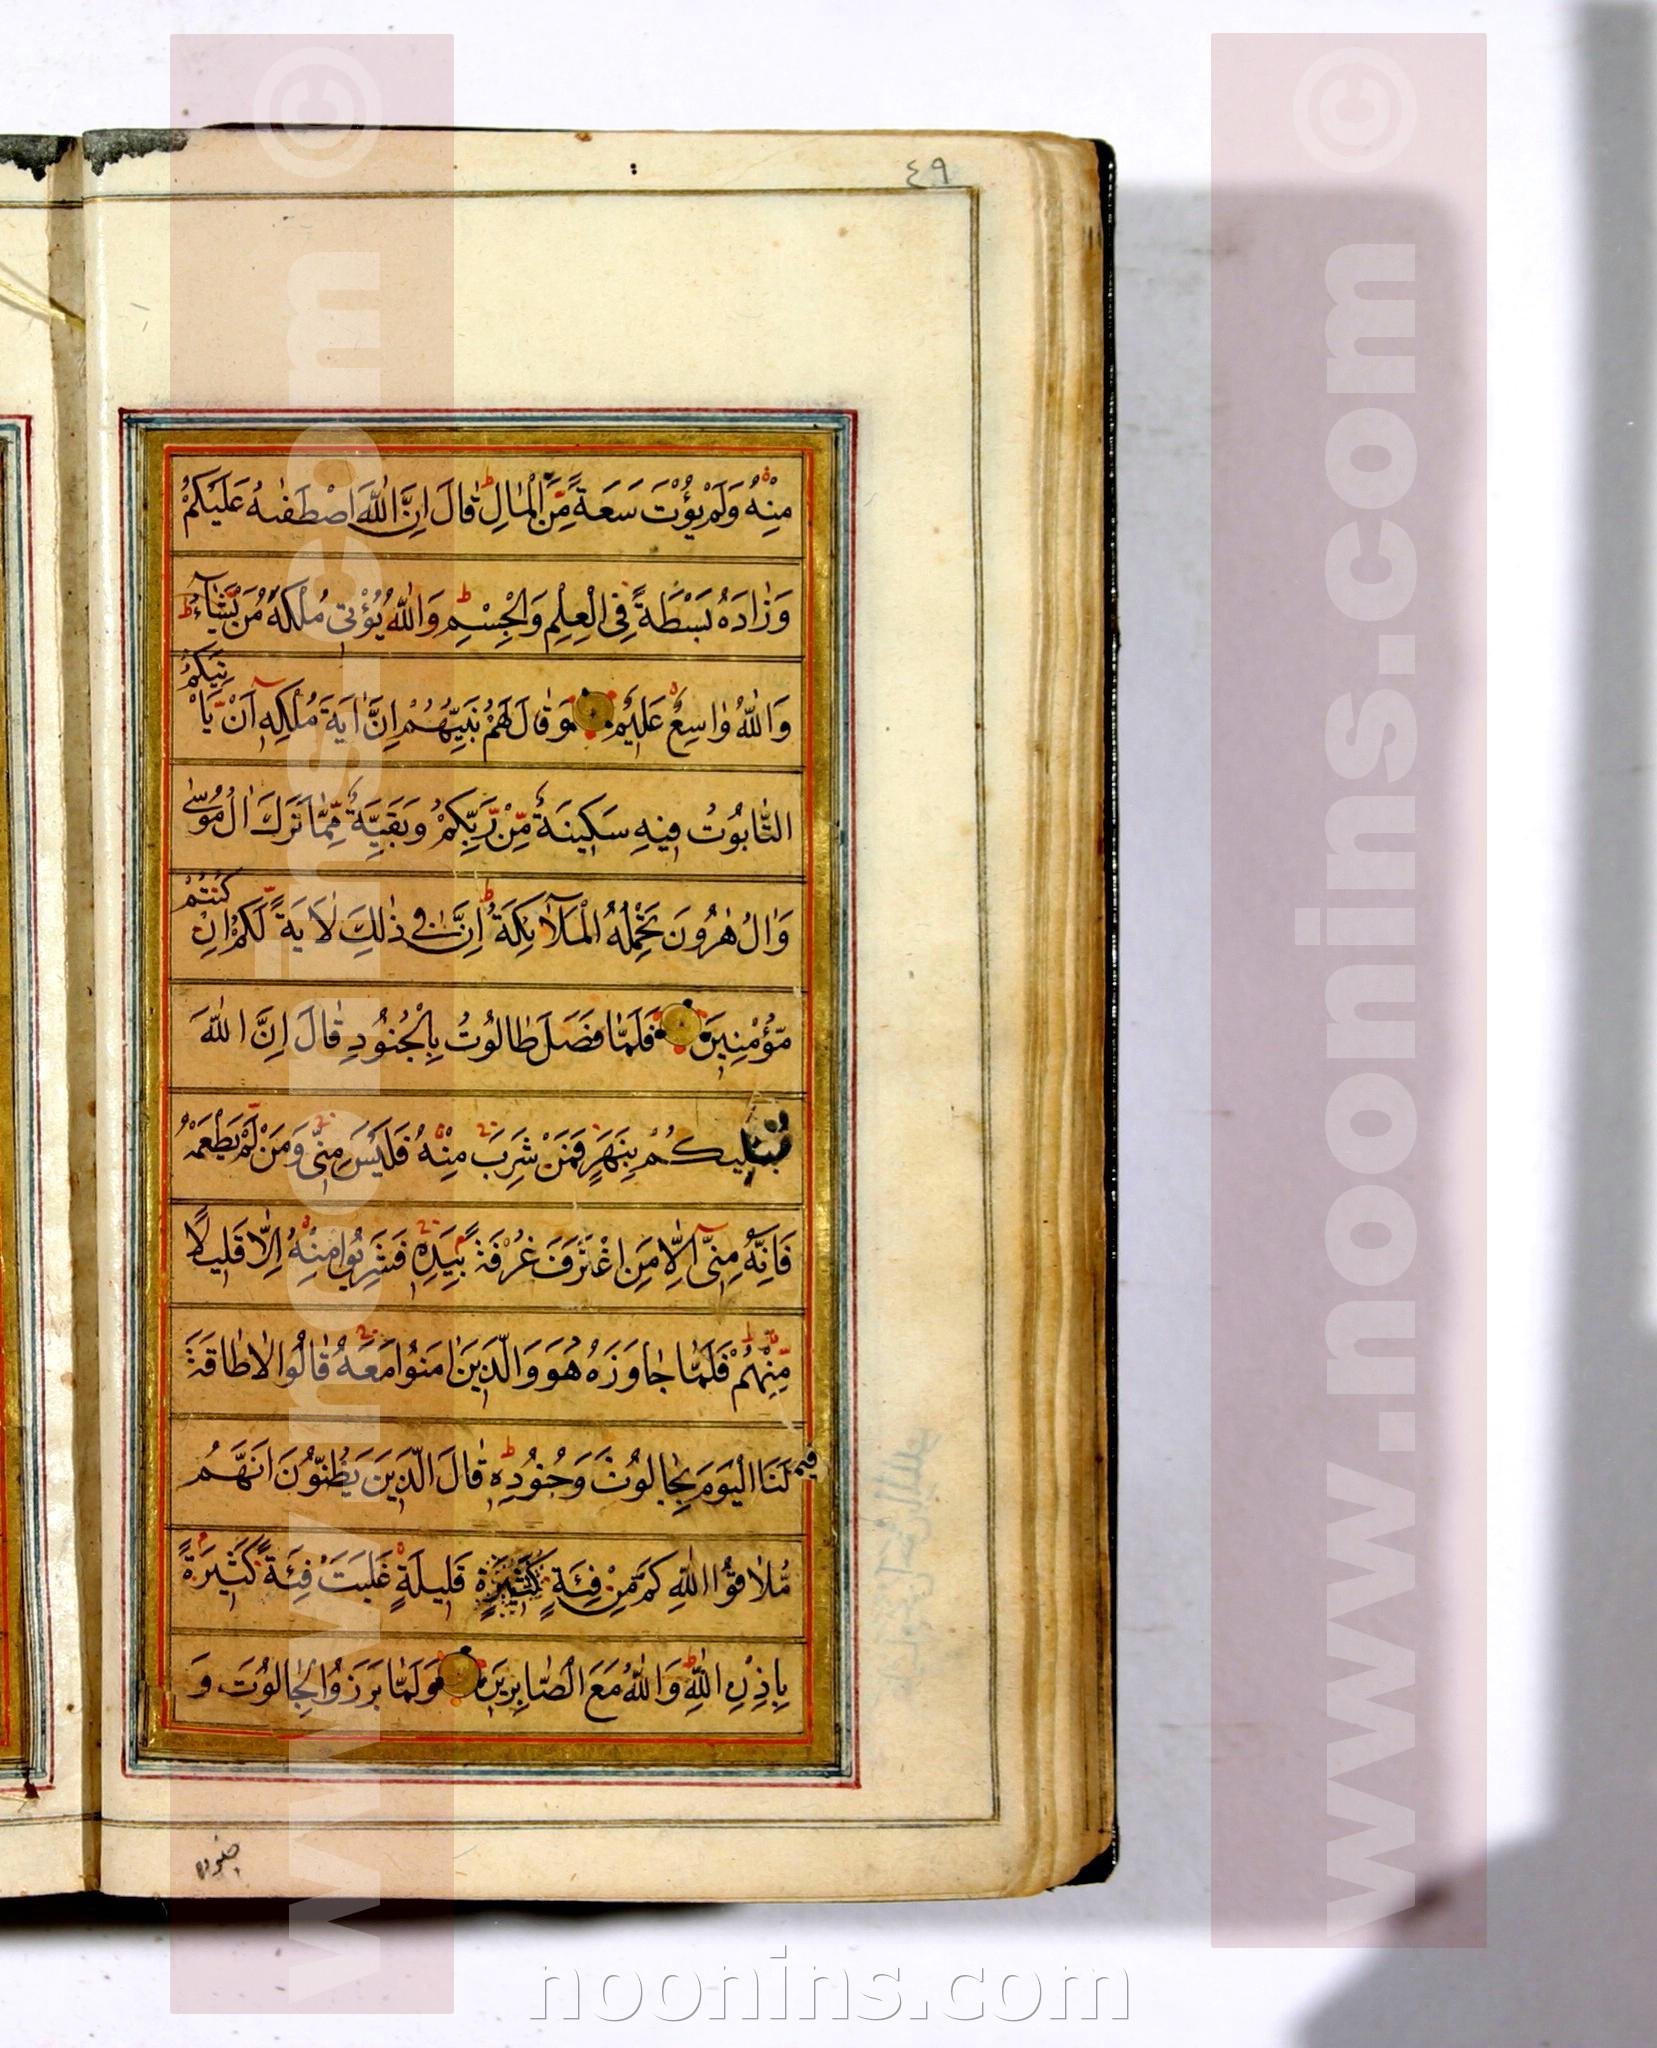 ٤٩
مِنْهُ وَلَمْ يُؤْتَ سَعَةً مِّنَ الْمٰالِ ط قٰالَ اِنَّ اللّٰهَ اصْطَفٰىهُ عَلَيْكُمْ
وَزٰادَهُ بَسْطَةً فِى الْعِلْمِ وَالْجِسْمِ ط وَاللّٰهُ يُؤْتِى مُلْكَهُ مَنْ يَّشٰآءُ ط
وَاللّٰهُ وٰاسِعٌ عَلِيمٌ وَقٰالَ لَهُمْ نَبِيُّهُمْ اِنَّ اٰيَةَ مُلْكِهِ اَنْ يَأْتِيَكُمُ
التّٰابُوتُ فِيهِ سَكِينَةٌ مِّنْ رَّبِّكُمْ وَبَقِيَّةٌ مِّمّٰا تَرَكَ اٰلُ مُوسٰى
وَاٰلُ هٰرُونَ تَحْمِلُهُ الْمَلٰآئِكَةُ ط اِنَّ فِى ذٰلِكَ لَاٰيَةً لَّكُمْ اِنْ كُنْتُمْ
مُّؤْمِنِينَ فَلَمّٰا فَصَلَ طٰالُوتُ بِالْجُنُودِ قٰالَ اِنَّ اللّٰهَ
مُبْتَلِيكُمْ بِنَهَرٍ فَمَنْ شَرِبَ مِنْهُ فَلَيْسَ مِنِّى وَمَنْ لَمْ يَطْعَمْهُ
فَاِنَّهُ مِنِّىٓ اِلّٰا مَنِ اغْتَرَفَ غُرْفَةً بِيَدِهِ فَشَرِبُوا مِنْهُ اِلّٰا قَلِيلًا
مِّنْهُمْ فَلَمّٰا جٰاوَزَهُ هُوَ وَالَّذِينَ اٰمَنُوا مَعَهُ قٰالُوا لٰا طٰاقَةَ
لَنَا الْيَوْمَ بِجٰالُوتَ وَجُنُودِهِ ط قٰالَ الَّذِينَ يَظُنُّونَ اَنَّهُمْ
مُّلٰاقُوا اللّٰهِ كَمْ مِّنْ فِئَةٍ كَثِيرَةٍ قَلِيلَةٍ غَلَبَتْ فِئَةً كَثِيرَةً
بِاِذْنِ اللّٰهِ ط وَاللّٰهُ مَعَ الصّٰابِرِينَ وَلَمّٰا بَرَزُوا لِجٰالُوتَ وَ
www.noonins.com ©
www.noonins.com ©
noonins.com